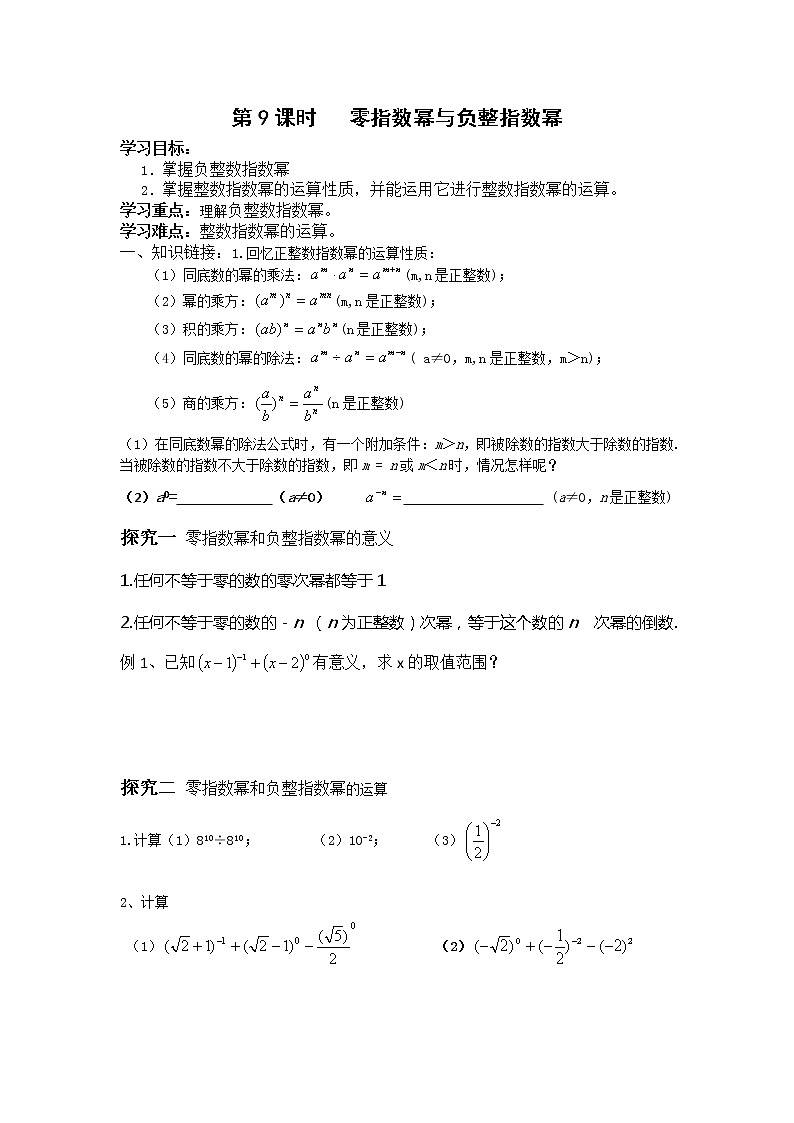 第9课时 零指数幂与负整指数幂
学习目标：
1．掌握负整数指数幂
2．掌握整数指数幂的运算性质，并能运用它进行整数指数幂的运算。
学习重点：理解负整数指数幂。
学习难点：整数指数幂的运算。
一、知识链接：1.回忆正整数指数幂的运算性质：
（1）同底数的幂的乘法：a^m · a^n = a^{m+n} (m,n是正整数)；
（2）幂的乘方：(a^m)^n = a^{mn} (m,n是正整数)；
（3）积的乘方：(ab)^n = a^n b^n (n是正整数)；
（4）同底数的幂的除法：a^m ÷ a^n = a^{m−n} ( a≠0，m,n是正整数，m＞n)；
（5）商的乘方：(a/b)^n = a^n/b^n (n是正整数)
（1）在同底数幂的除法公式时，有一个附加条件：m＞n，即被除数的指数大于除数的指数.
当被除数的指数不大于除数的指数，即m = n或m＜n时，情况怎样呢？
（2）a⁰=____________（a≠0） a^{−n} =__________________（a≠0，n是正整数）
探究一 零指数幂和负整指数幂的意义
1.任何不等于零的数的零次幂都等于1
2.任何不等于零的数的－n （n为正整数）次幂，等于这个数的n 次幂的倒数.
例1、已知(x−1)^{−1}+(x−2)^0有意义，求x的取值范围？
探究二 零指数幂和负整指数幂的运算
1.计算（1）8¹⁰÷8¹⁰； （2）10⁻²； （3）(1/2)^{−2}
2、计算
（1）(√2+1)^{−1}+(√2−1)^0−(√5)/2^0 （2）(−√2)^0+(−1/2)^{−2}−(−2)^2